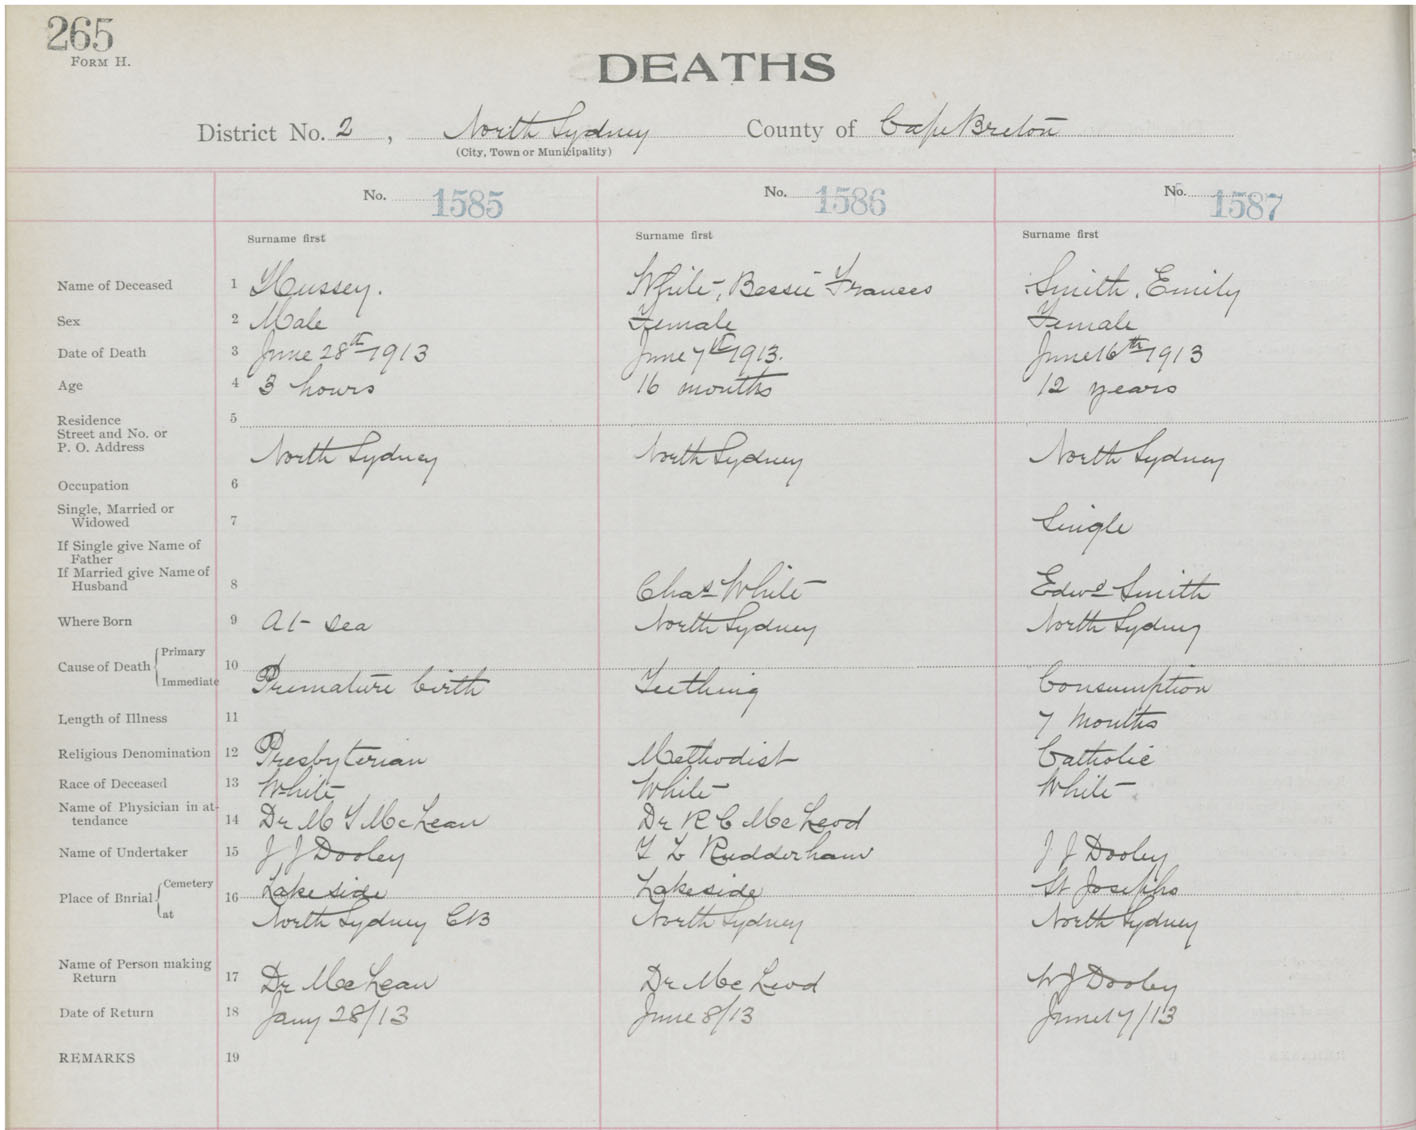 265
FORM H.
DEATHS
District No. 2, North Sydney County of Cape Breton
(City, Town or Municipality)
No. 1585 No. 1586 No. 1587
Surname first Surname first Surname first
Name of Deceased 1 Hussey. White, Bessie Frances Smith, Emily
Sex 2 Male Female Female
Date of Death 3 June 28th 1913 June 7th 1913. June 16th 1913
Age 4 3 hours 16 months 12 years
Residence 5
Street and No. or
P. O. Address North Sydney North Sydney North Sydney
Occupation 6
Single, Married or
Widowed 7 Single
If Single give Name of
Father
If Married give Name of
Husband 8 Chas White Edwd Smith
Where Born 9 At sea North Sydney North Sydney
Cause of Death Primary 10
Immediate Premature birth Teething Consumption
Length of Illness 11 7 Months
Religious Denomination 12 Presbyterian Methodist Catholic
Race of Deceased 13 White White White
Name of Physician in at-
tendance 14 Dr M T McLean Dr R C McLeod
Name of Undertaker 15 J J Dooley T L Rudderham J J Dooley
Place of Burial Cemetery 16 Lakeside Lakeside St Josephs
at North Sydney CB North Sydney North Sydney
Name of Person making
Return 17 Dr McLean Dr McLeod W J Dooley
Date of Return 18 Jany 28/13 June 8/13 June 17/13
REMARKS 19